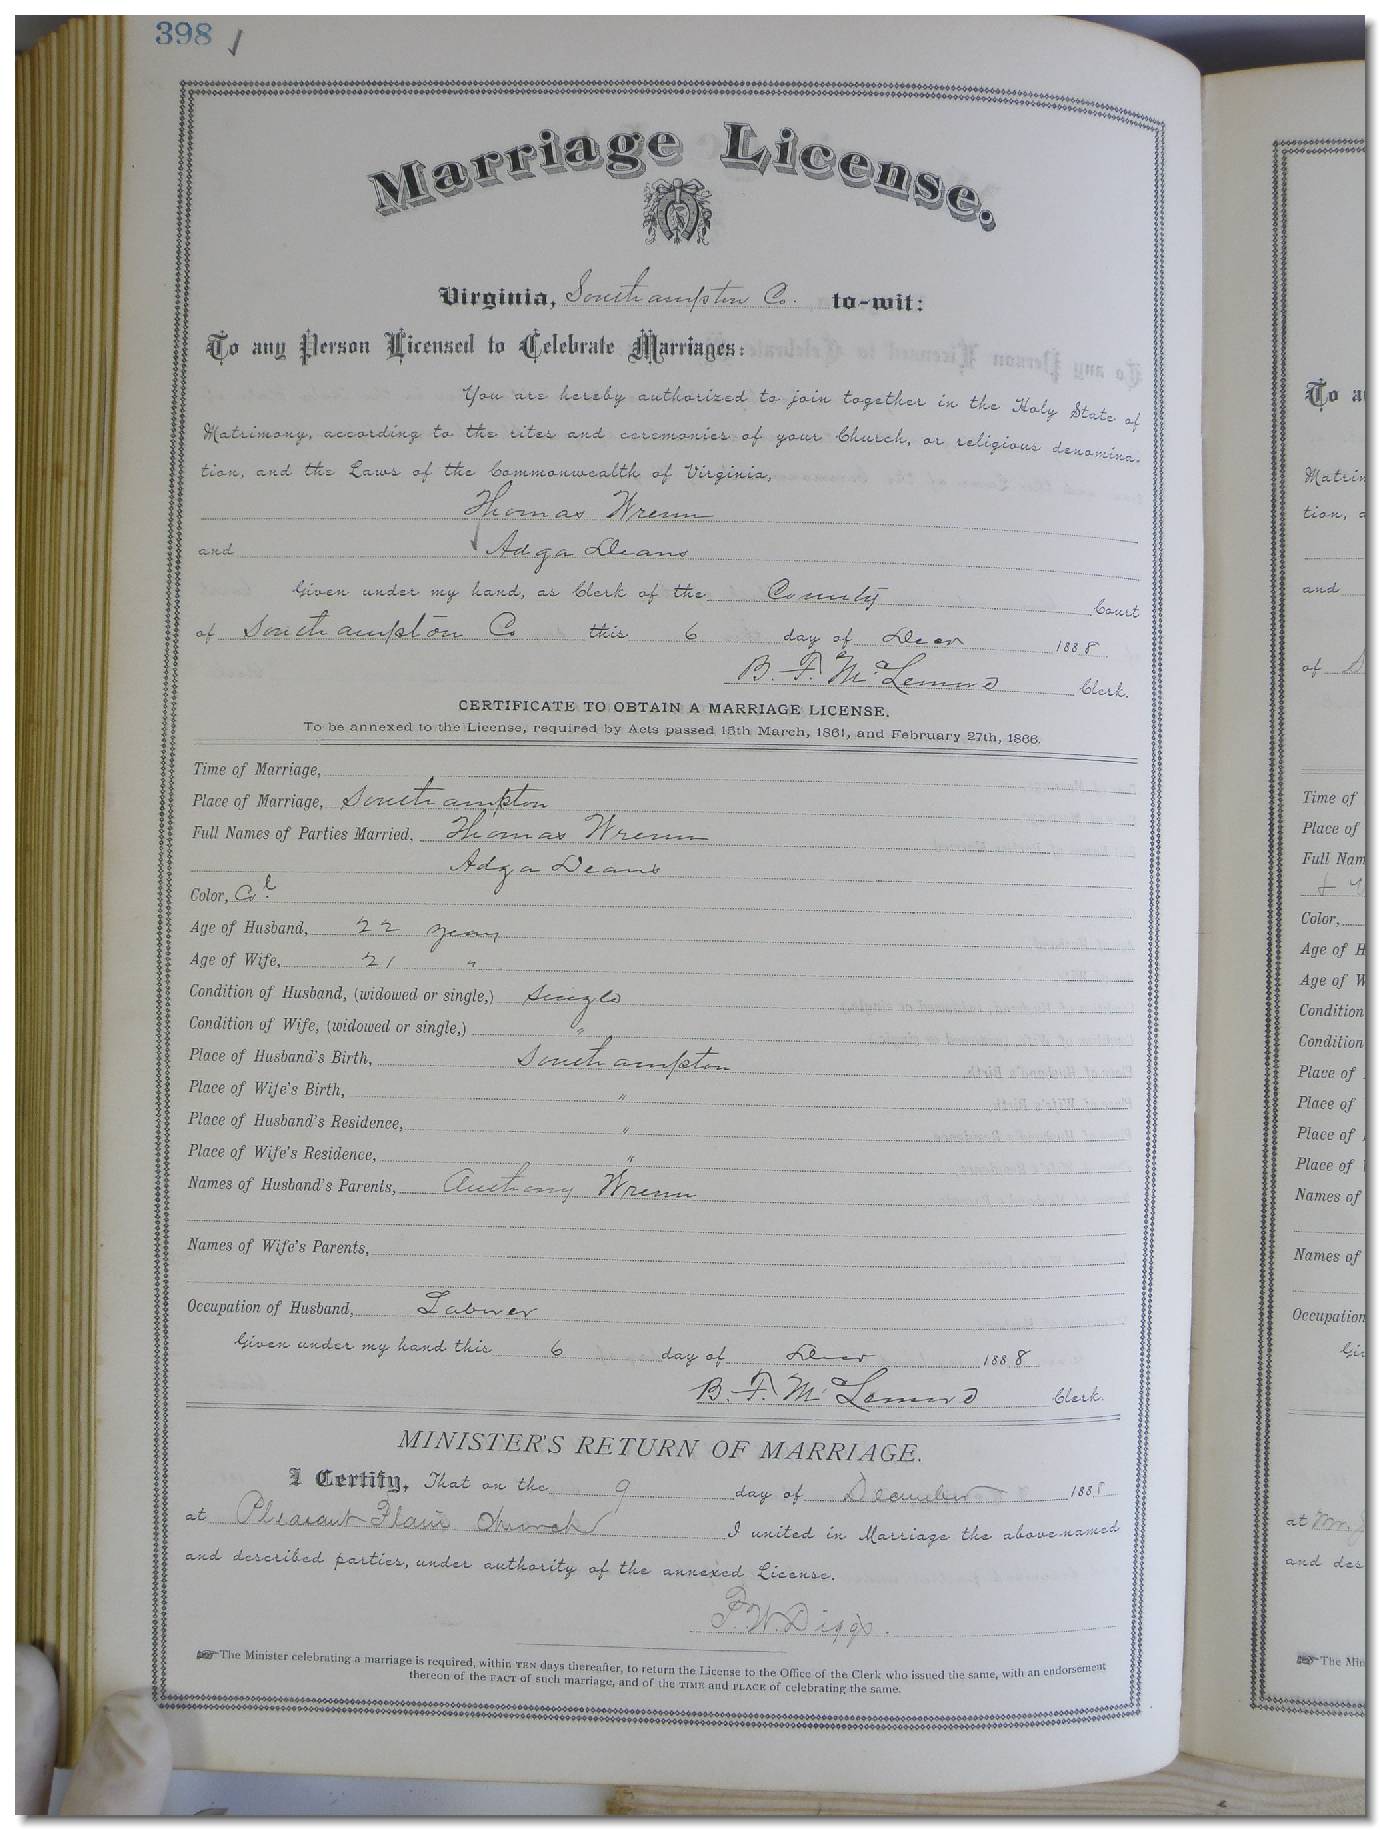 398 ✓
Marriage License.
Virginia, Southampton Co. to-wit:
To any Person Licensed to Celebrate Marriages:
You are hereby authorized to join together in the Holy State of
Matrimony, according to the rites and ceremonies of your Church, or religious denomina-
tion, and the Laws of the Commonwealth of Virginia,
Thomas Wrenn
and Adga Deans
Given under my hand, as Clerk of the County Court
of Southampton Co this 6 day of Decr 1888.
B. F. McLemore Clerk.
CERTIFICATE TO OBTAIN A MARRIAGE LICENSE.
To be annexed to the License, required by Acts passed 15th March, 1861, and February 27th, 1866.
Time of Marriage,
Place of Marriage, Southampton
Full Names of Parties Married, Thomas Wrenn
Adga Deans
Color, Col
Age of Husband, 22 years
Age of Wife, 21 "
Condition of Husband, (widowed or single,) Single
Condition of Wife, (widowed or single,) "
Place of Husband's Birth, Southampton
Place of Wife's Birth, "
Place of Husband's Residence, "
Place of Wife's Residence, "
Names of Husband's Parents, Anthony Wrenn
Names of Wife's Parents,
Occupation of Husband, Laborer
Given under my hand this 6 day of Decr 1888
B. F. McLemore Clerk.
MINISTER'S RETURN OF MARRIAGE.
I Certify, That on the 9 day of December 1888
at Pleasant Plain Church I united in Marriage the above-named
and described parties, under authority of the annexed License.
F. W. Diggs.
☞ The Minister celebrating a marriage is required, within TEN days thereafter, to return the License to the Office of the Clerk who issued the same, with an endorsement
thereon of the FACT of such marriage, and of the TIME and PLACE of celebrating the same.
To a
Matrim
tion, a
and
of
Time of
Place of
Full Nam
Color,
Age of H
Age of W
Condition
Condition
Place of
Place of
Place of
Place of
Names of
Names of
Occupation
Giv
at
and des
☞ The Min